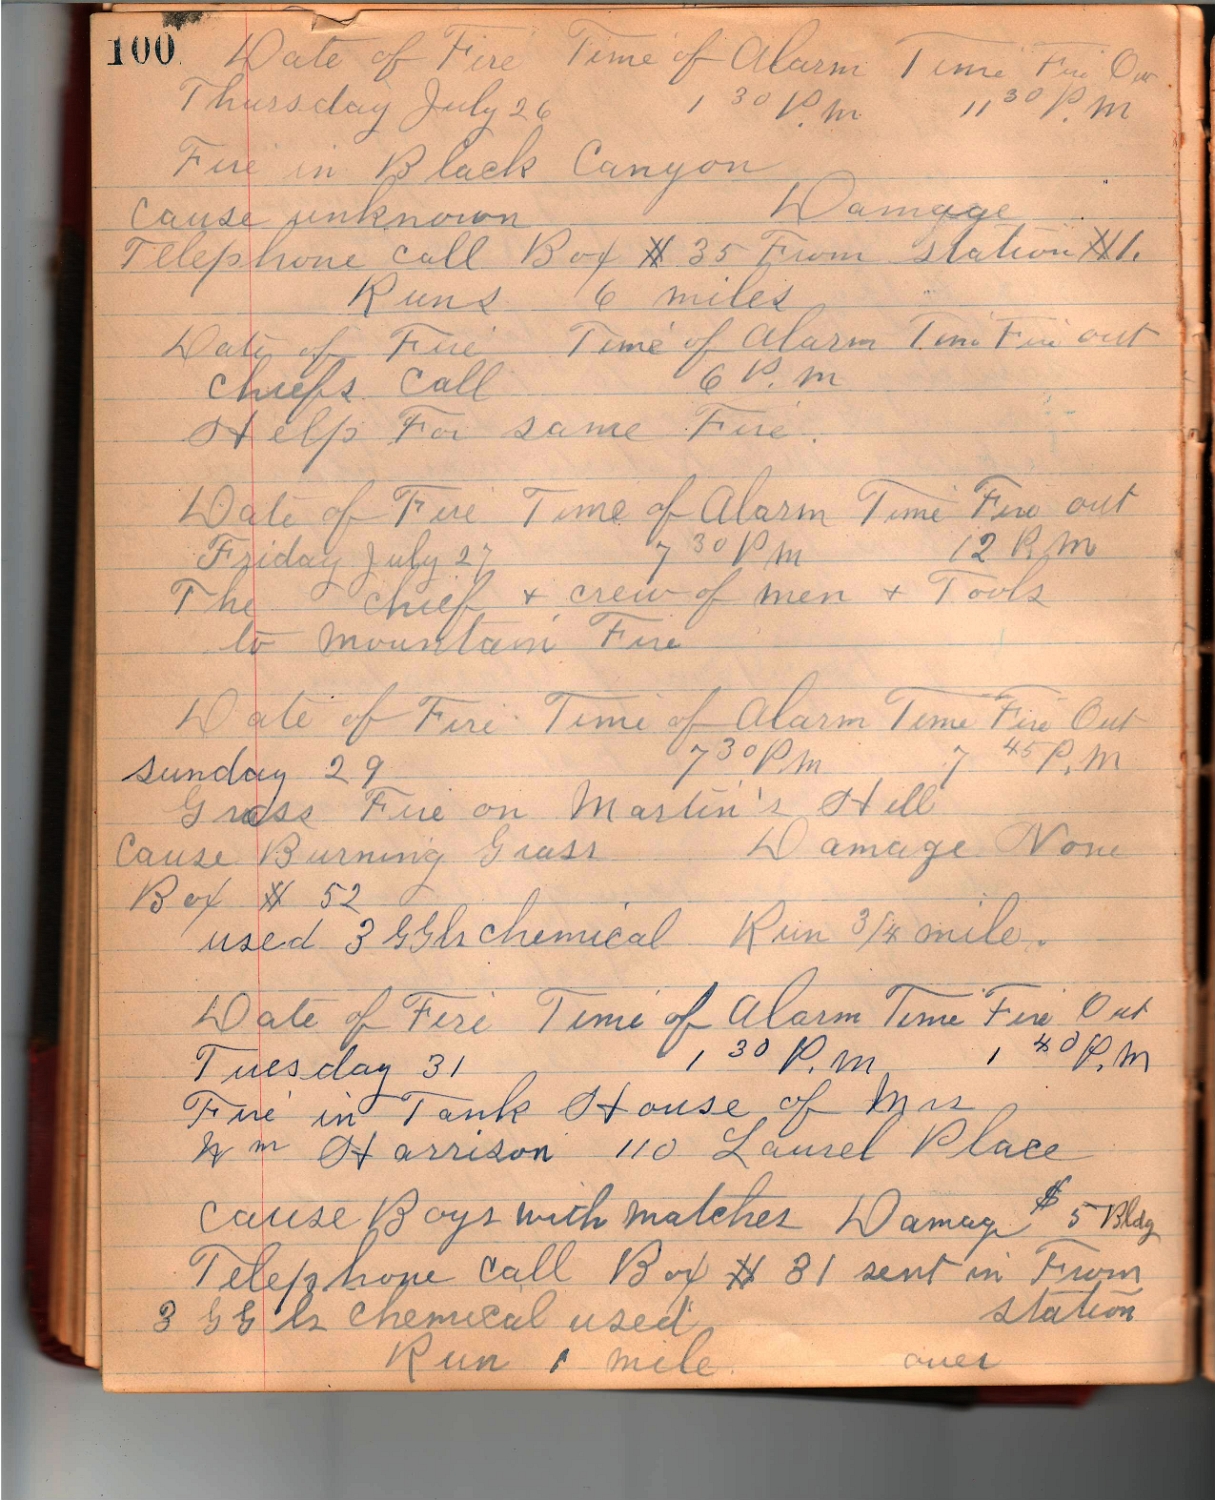 100
Date of Fire Time of Alarm Time Fire Ou
Thursday July 26 1 30 P.M 11 30 P.M
Fire in Black Canyon
Cause unknown Damage
Telephone call Box # 35 From Station #1.
Runs 6 miles
Date of Fire Time of Alarm Time Fire out
Chiefs Call 6 P.M
Help For same Fire.
Date of Fire Time of Alarm Time Fire out
Friday July 27 7 30 P M 12 P.M
The chief + crew of men + Tools
to Mountain Fire
Date of Fire Time of Alarm Time Fire Out
Sunday 29 7 30 P M 7 45 P.M
Grass Fire on Martin's Hill
Cause Burning Grass Damage None
Box # 52
used 3 GGls chemical Run 3/4 mile.
Date of Fire Time of Alarm Time Fire Out
Tuesday 31 1 30 P.M 1 40 P.M
Fire in Tank House of Mrs
Wm Harrison 110 Laurel Place
Cause Boys with matches Damag $ 5 Bldg
Telephone call Box # 31 sent in From
3 GGls Chemical used station
Run 1 mile. over